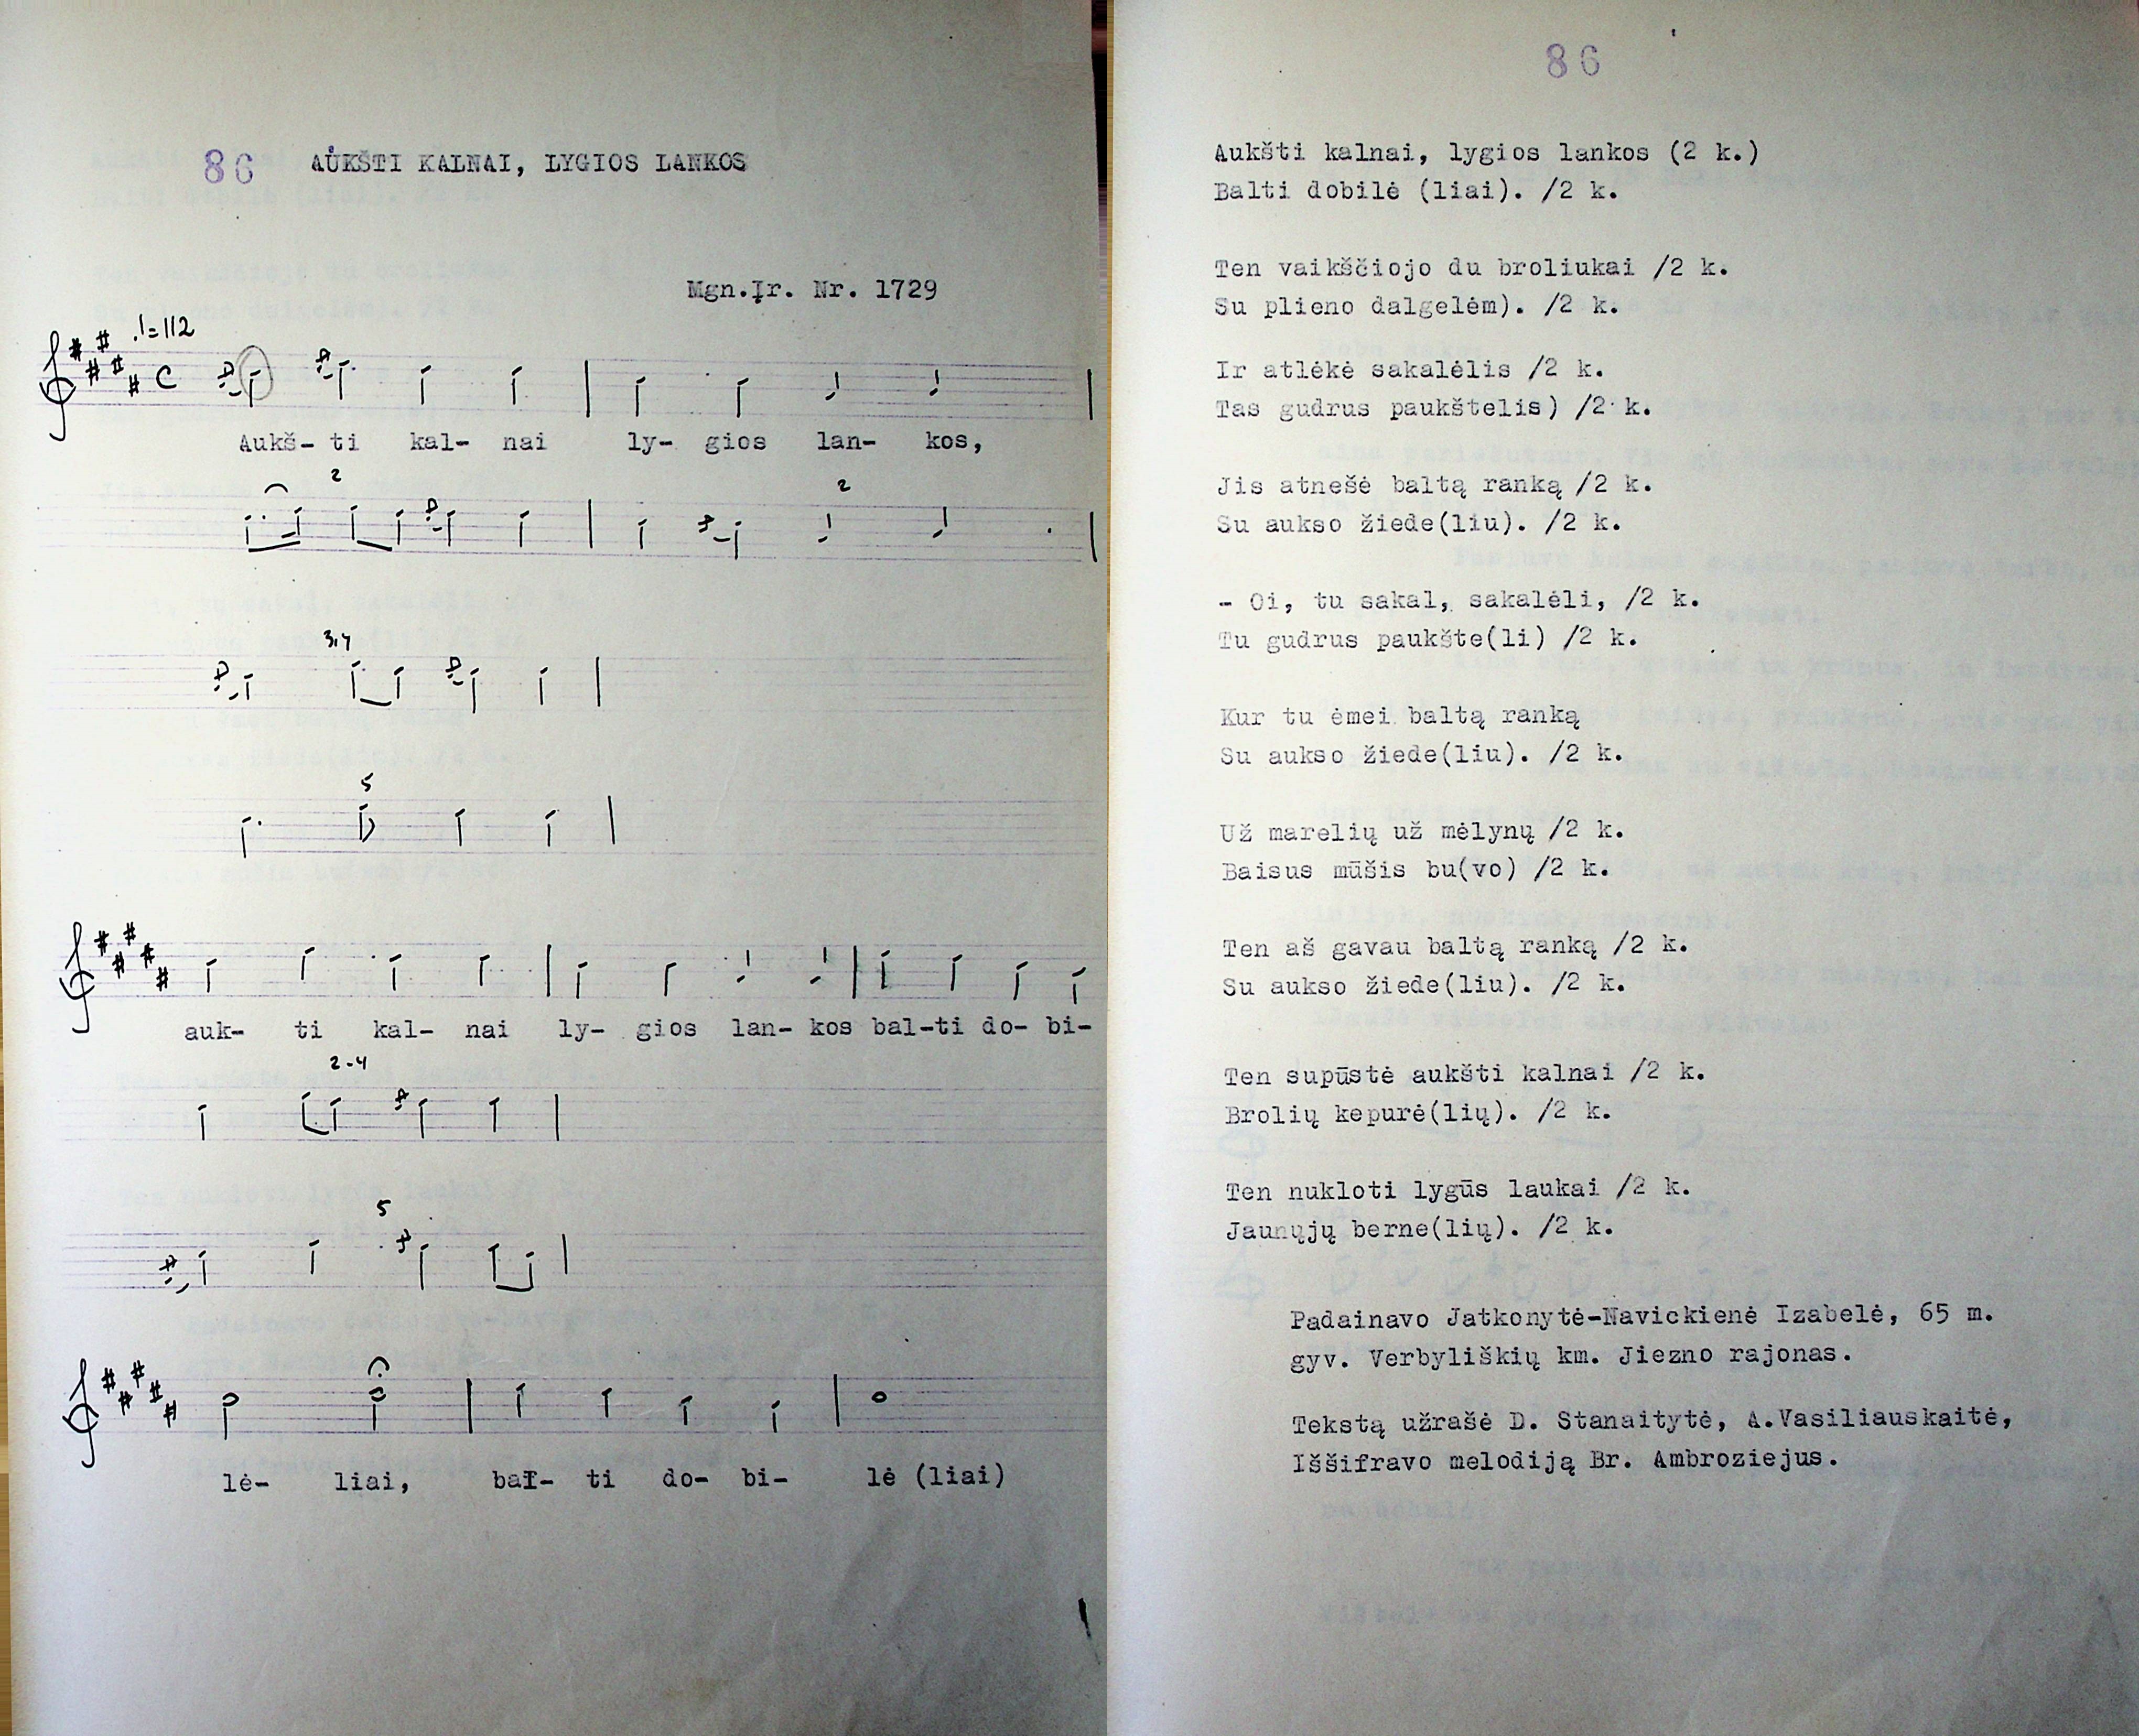 86 AUKŠTI KALNAI, LYGIOS LANKOS
Mgn.Įr. Nr. 1729
♩=112
Aukš- ti kal- nai ly- gios lan- kos,
2 2
3,4
5
auk- ti kal- nai ly- gios lan- kos bal-ti do- bi-
2-4
5
lė- liai, bal- ti do- bi- lė (liai)
86
Aukšti kalnai, lygios lankos (2 k.)
Balti dobilė (liai). /2 k.
Ten vaikščiojo du broliukai /2 k.
Su plieno dalgelėm). /2 k.
Ir atlėkė sakalėlis /2 k.
Tas gudrus paukštelis) /2 k.
Jis atnešė baltą ranką /2 k.
Su aukso žiede(liu). /2 k.
- Oi, tu sakal, sakalėli, /2 k.
Tu gudrus paukšte(li) /2 k.
Kur tu ėmei baltą ranką
Su aukso žiede(liu). /2 k.
Už marelių už mėlynų /2 k.
Baisus mūšis bu(vo) /2 k.
Ten aš gavau baltą ranką /2 k.
Su aukso žiede(liu). /2 k.
Ten supūstė aukšti kalnai /2 k.
Brolių kepurė(lių). /2 k.
Ten nukloti lygūs laukai /2 k.
Jaunųjų berne(lių). /2 k.
Padainavo Jatkonytė-Navickienė Izabelė, 65 m.
gyv. Verbyliškių km. Jiezno rajonas.
Tekstą užrašė D. Stanaitytė, A.Vasiliauskaitė,
Iššifravo melodiją Br. Ambroziejus.